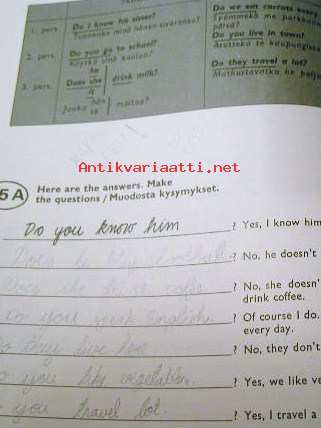 1. pers. Do I know his sister? Do we eat carrots every
Tunnenko minä hänen sisarensa?
2. pers. Do you go to school? Do you live in town?
Käytkö sinä koulua? Asutteko te kaupungissa
3. pers. Does he she it drink milk? Do they travel a lot?
Juoko hän se maitoa? Matkustavatko he paljon
Antikvariaatti.net
5 A) Here are the answers. Make
the questions / Muodosta kysymykset.
Do you know him ? Yes, I know him
Does he play football ? No, he doesn't
Does she drink coffee ? No, she doesn'
drink coffee.
Do you speak English ? Of course I do.
every day.
Do they live here ? No, they don't
you like vegetables ? Yes, we like ve
you travel lot ? Yes, I travel a